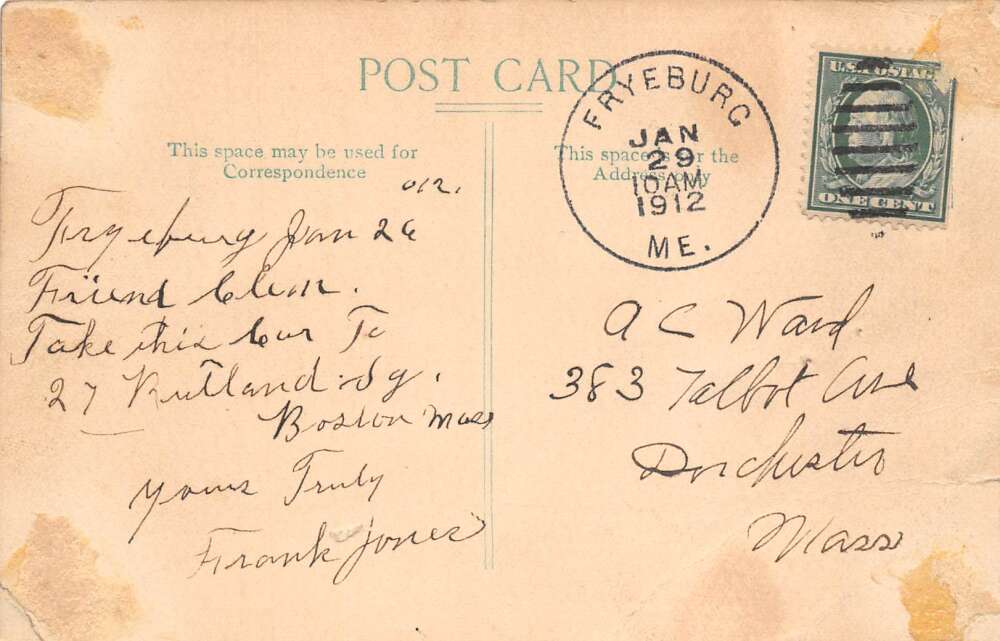 POST CARD
This space may be used for
Correspondence
This space is for the
Address only
FRYEBURG
JAN
29
10AM
1912
ME.
U.S. POSTAG
ONE CENT
012.
Fryeburg Jan 26
Friend Clem.
Take this Cur To
27 Rutland. Sq.
Boston Mass
Yours Truly
Frank Jones
A C Ward
383 Talbot Ave
Dorchester
Mass